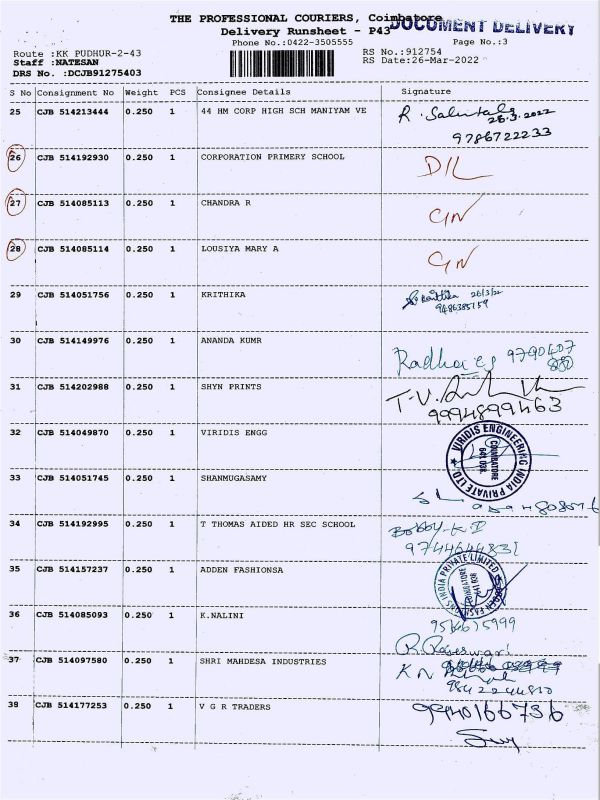 THE PROFESSIONAL COURIERS, Coimbatore
DOCUMENT DELIVERY
Delivery Runsheet - P43
Phone No.:0422-3505555
Page No.:3
Route :KK PUDHUR-2-43
RS No.:912754
Staff :NATESAN
RS Date:26-Mar-2022
DRS No. :DCJB91275403
S No Consignment No Weight PCS Consignee Details Signature
25 CJB 514213444 0.250 1 44 HM CORP HIGH SCH MANIYAM VE
26.3.2022
9786722233
26 CJB 514192930 0.250 1 CORPORATION PRIMERY SCHOOL D/L
27 CJB 514085113 0.250 1 CHANDRA R
28 CJB 514085114 0.250 1 LOUSIYA MARY A
29 CJB 514051756 0.250 1 KRITHIKA 26/3/22
9486385159
30 CJB 514149976 0.250 1 ANANDA KUMR
Radha
31 CJB 514202988 0.250 1 SHYN PRINTS T-V.
9994899463
32 CJB 514049870 0.250 1 VIRIDIS ENGG
VIRIDIS ENGINEERING INDIA PRIVATE LTD
COIMBATORE
641 038.
33 CJB 514051745 0.250 1 SHANMUGASAMY
34 CJB 514192995 0.250 1 T THOMAS AIDED HR SEC SCHOOL
35 CJB 514157237 0.250 1 ADDEN FASHIONSA
COIMBATORE
641 038
36 CJB 514085093 0.250 1 K.NALINI
37 CJB 514097580 0.250 1 SHRI MAHDESA INDUSTRIES K N
38 CJB 514177253 0.250 1 V G R TRADERS 9940166736